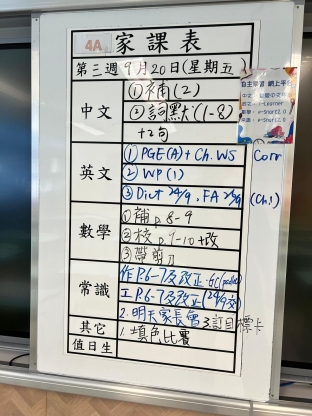 4A 家課表
第三週 9月20日(星期五)
中文
①補(2)
②詞默(1-8)
+2句
英文
① PGE(A) + Ch. WS Corr
② WP(1)
③ Dict 24/9, FA (Ch.1)
數學
①補 p.8-9
②校 p.9-10+改
③帶剪刀
常識
作P.6-7及改正.
工P.6-7及改正(24/9交)
2. 明天家長會 3.訂目標卡
其它
1. 填色比賽
值日生
自主學習 網上平台